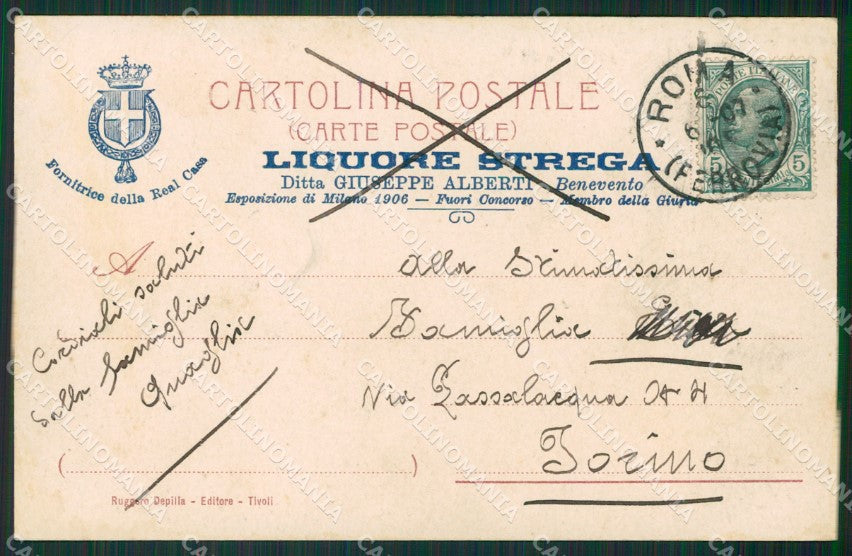 CARTOLINA POSTALE
(CARTE POSTALE)
LIQUORE STREGA
Ditta GIUSEPPE ALBERTI - Benevento
Esposizione di Milano 1906 — Fuori Concorso — Membro della Giuria
Fornitrice della Real Casa
ROMA
6 07
(FERROVIA)
POSTE ITALIANE
5 5
A
Alla Stimatissima
Famiglia
Via Passalacqua
Torino
Cordiali saluti
dalla famiglia
Quaglia
( )
Ruggero Depilla - Editore - Tivoli
CARTOLINOMANIA